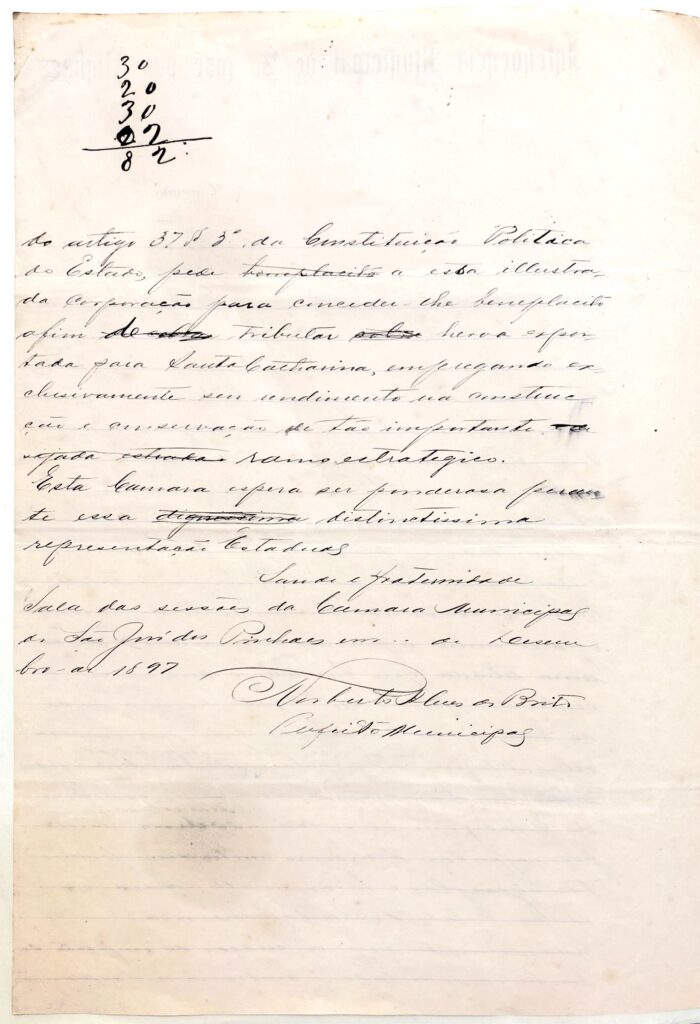 30
20
30
02
82
do artigo 37 § 3º da Constituição Politica
do Estado, pede beneplacito a essa illustra-
da corporação para conceder-lhe beneplacito
afim de tributar sobre herva expor-
tada para Santa Catharina, empregando ex-
clusivamente seu rendimento na construc-
ção e conservação de tão importante
estrada ramo estrategico.
Esta Camara espera ser ponderosa peran
te essa dignissima distinctissima
representação Estadual
Saude e fraternidade
Sala das sessões da Camara Municipal
de São José dos Pinhaes em... de Desem
bro de 1897
Norberto Alves de Brito
Prefeito Municipal